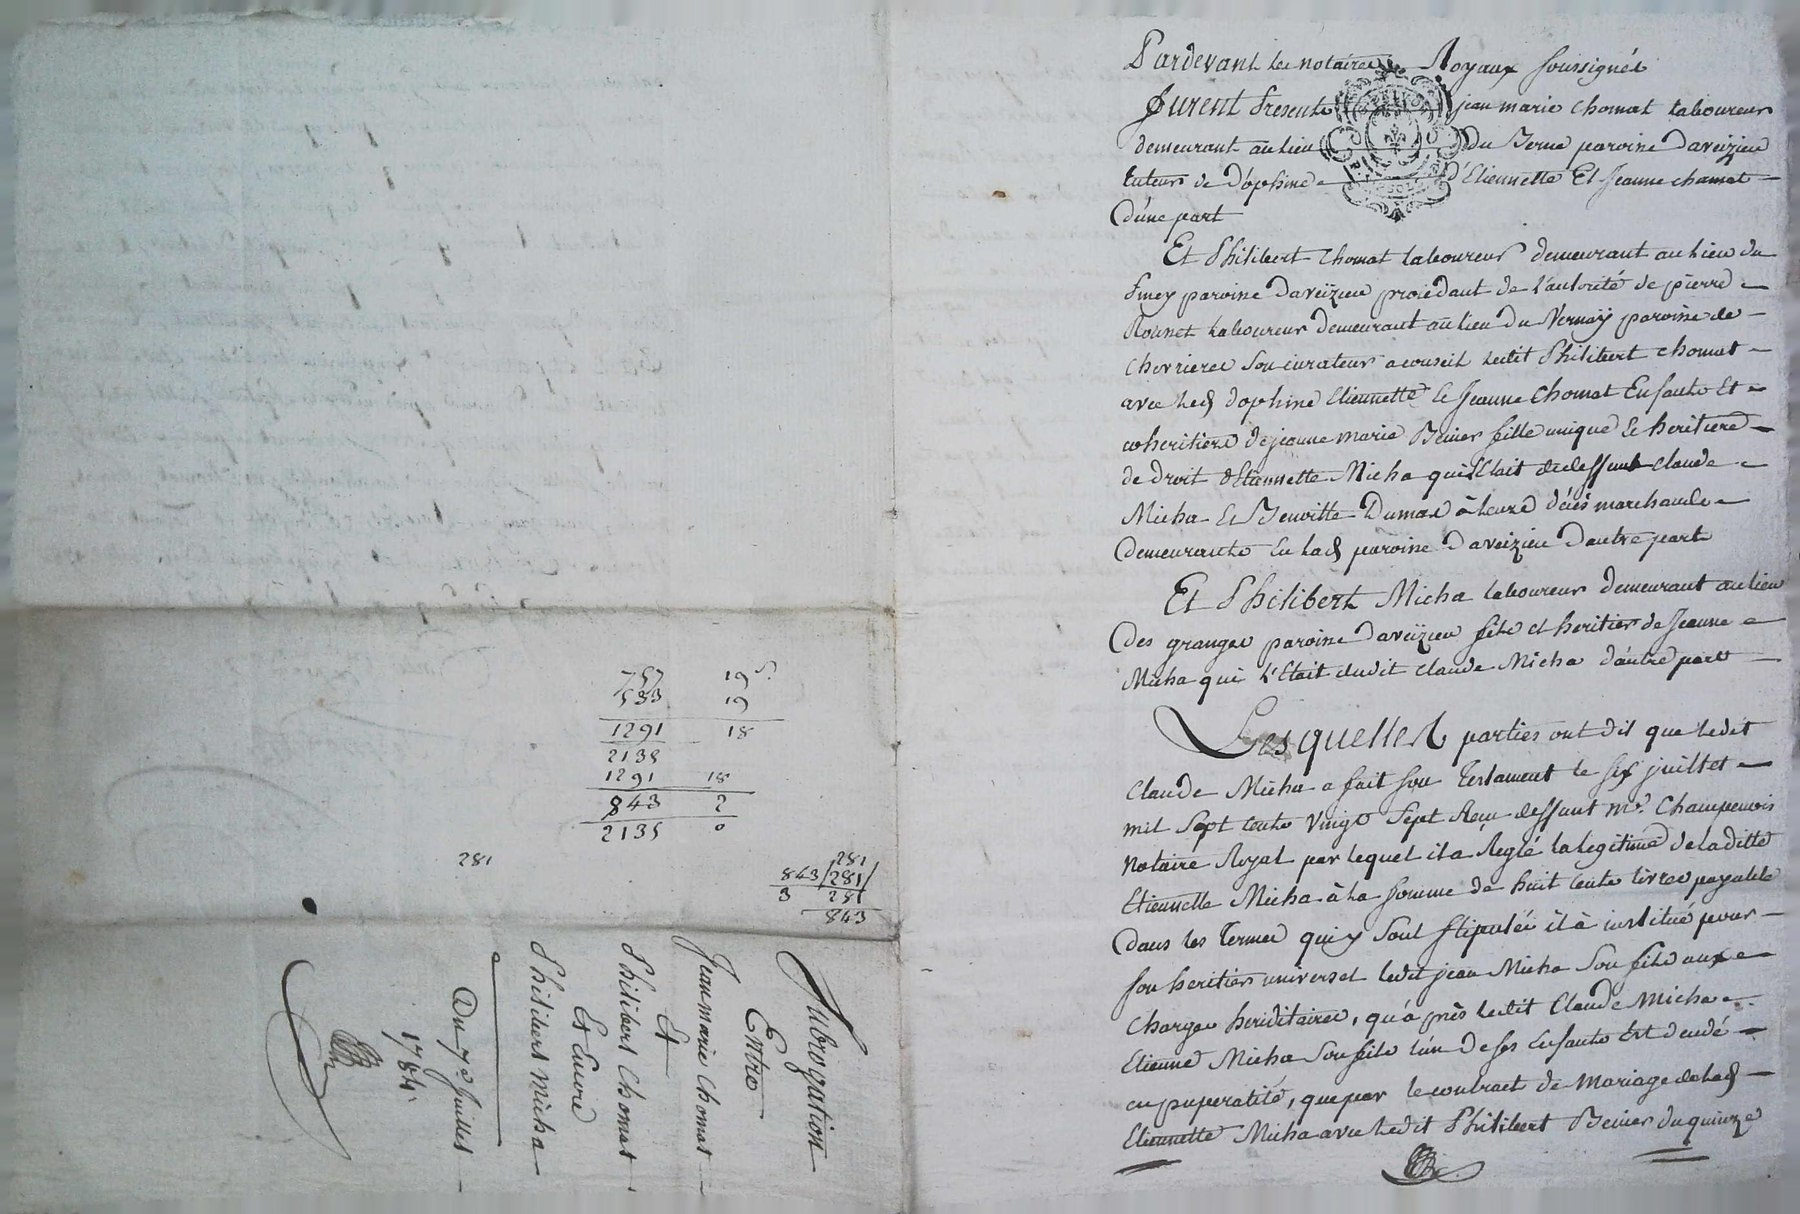 757 19 s
533 19
1291 18
2135
1291 18
843 2
2135 0
281
281
843/281/
3 281
843
Subrogation
Entre
Jean marie Chomat
Et
Philibert Chomat
Et Encore
Philibert Micha
Du 7e Juillet
1784
Pardevant les notaires Royaux soussignés
furent Présents jean marie chomat laboureur
demeurant au lieu du paroisse daveizieu
tuteur de dóphine d'Etiennette Et Jeanne chomat
d'úne part
Et Philibert Chomat laboureur demeurant au lieu du
paroisse daveizieu procédant de l'autorité de pierre
laboureur demeurant au lieu du Vernaÿ paroisse de
Chevrieres son curateur a conseil ledit Philibert chomat
avec lesd dophine Etiennette Et Jeanne Chomat Enfants Et
coheritiers de jeanne marie Beinier fille unique Et heritiere
de droit d'Etiennette Micha qui l'Etait de deffunt claude
Micha Et Benoitte Dumas à leurs décès marchands
demeurants En lad paroisse daveizieu dautre part
Et Philibert Micha laboureur demeurant au lieu
des granges paroisse daveizieu fils et heritier de Jeanne
Micha qui l'Etait dudit claude Micha dáutre part
Lesquelles parties ont dit que ledit
Claude Micha a fait son Testament le six juillet
mil Sept Cents Vingt Sept Reçu deffunt me. Champenois
Notaire Royal par lequel il a Reglé la legitime de laditte
Etiennette Micha à la somme de huit Cents livres payable
dans les Termes qui y sont stipulés il à institué pour
son heritier universel ledit jean Micha Son fils aux
Charges heriditaires, qu'áprès ledit Claude Micha
Etienne Micha Son fils l'un de ses Enfants Est dcudé
en puperalité, que par le contract de Mariage de lad
Etiennette Micha avec ledit Philibert Beinier du quinze